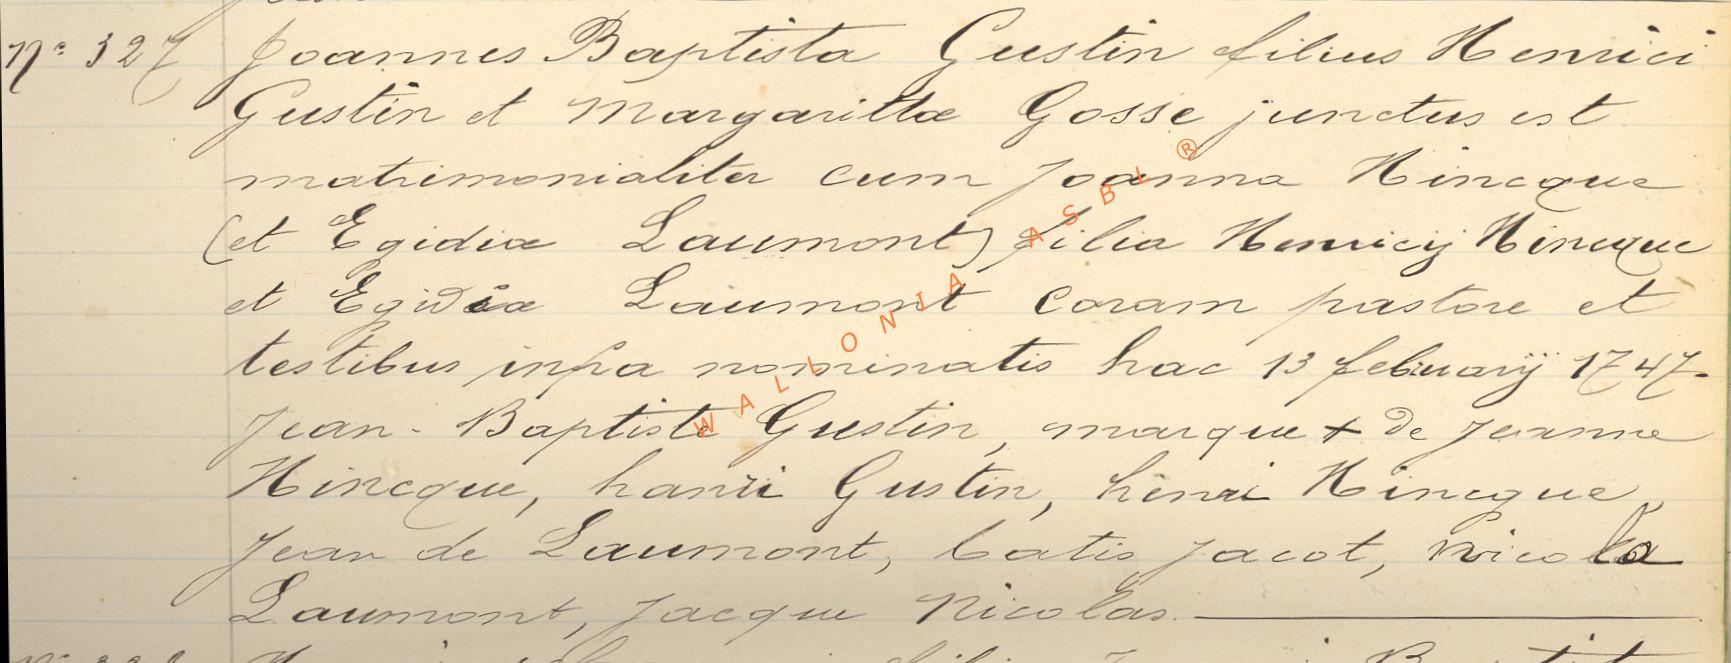 N° 327 Joannes Baptista Gustin filius Henrici
Gustin et Margarittæ Gosse junctus est
matrimonialiter cum Joanna Hincque
(et Egidiæ Laumont) filia Henricij Hincque
et Egidiæ Laumont coram pastore et
testibus infra nominatis hac 13 februarÿ 1747.
Jean-Baptiste Gustin, marque + de Jeanne
Hincque, hanri Gustin, henri Hincque,
Jean de Laumont, batis Jacot, Nicola
Laumont, Jacque Nicolas.
WALLONIA ASBL ®